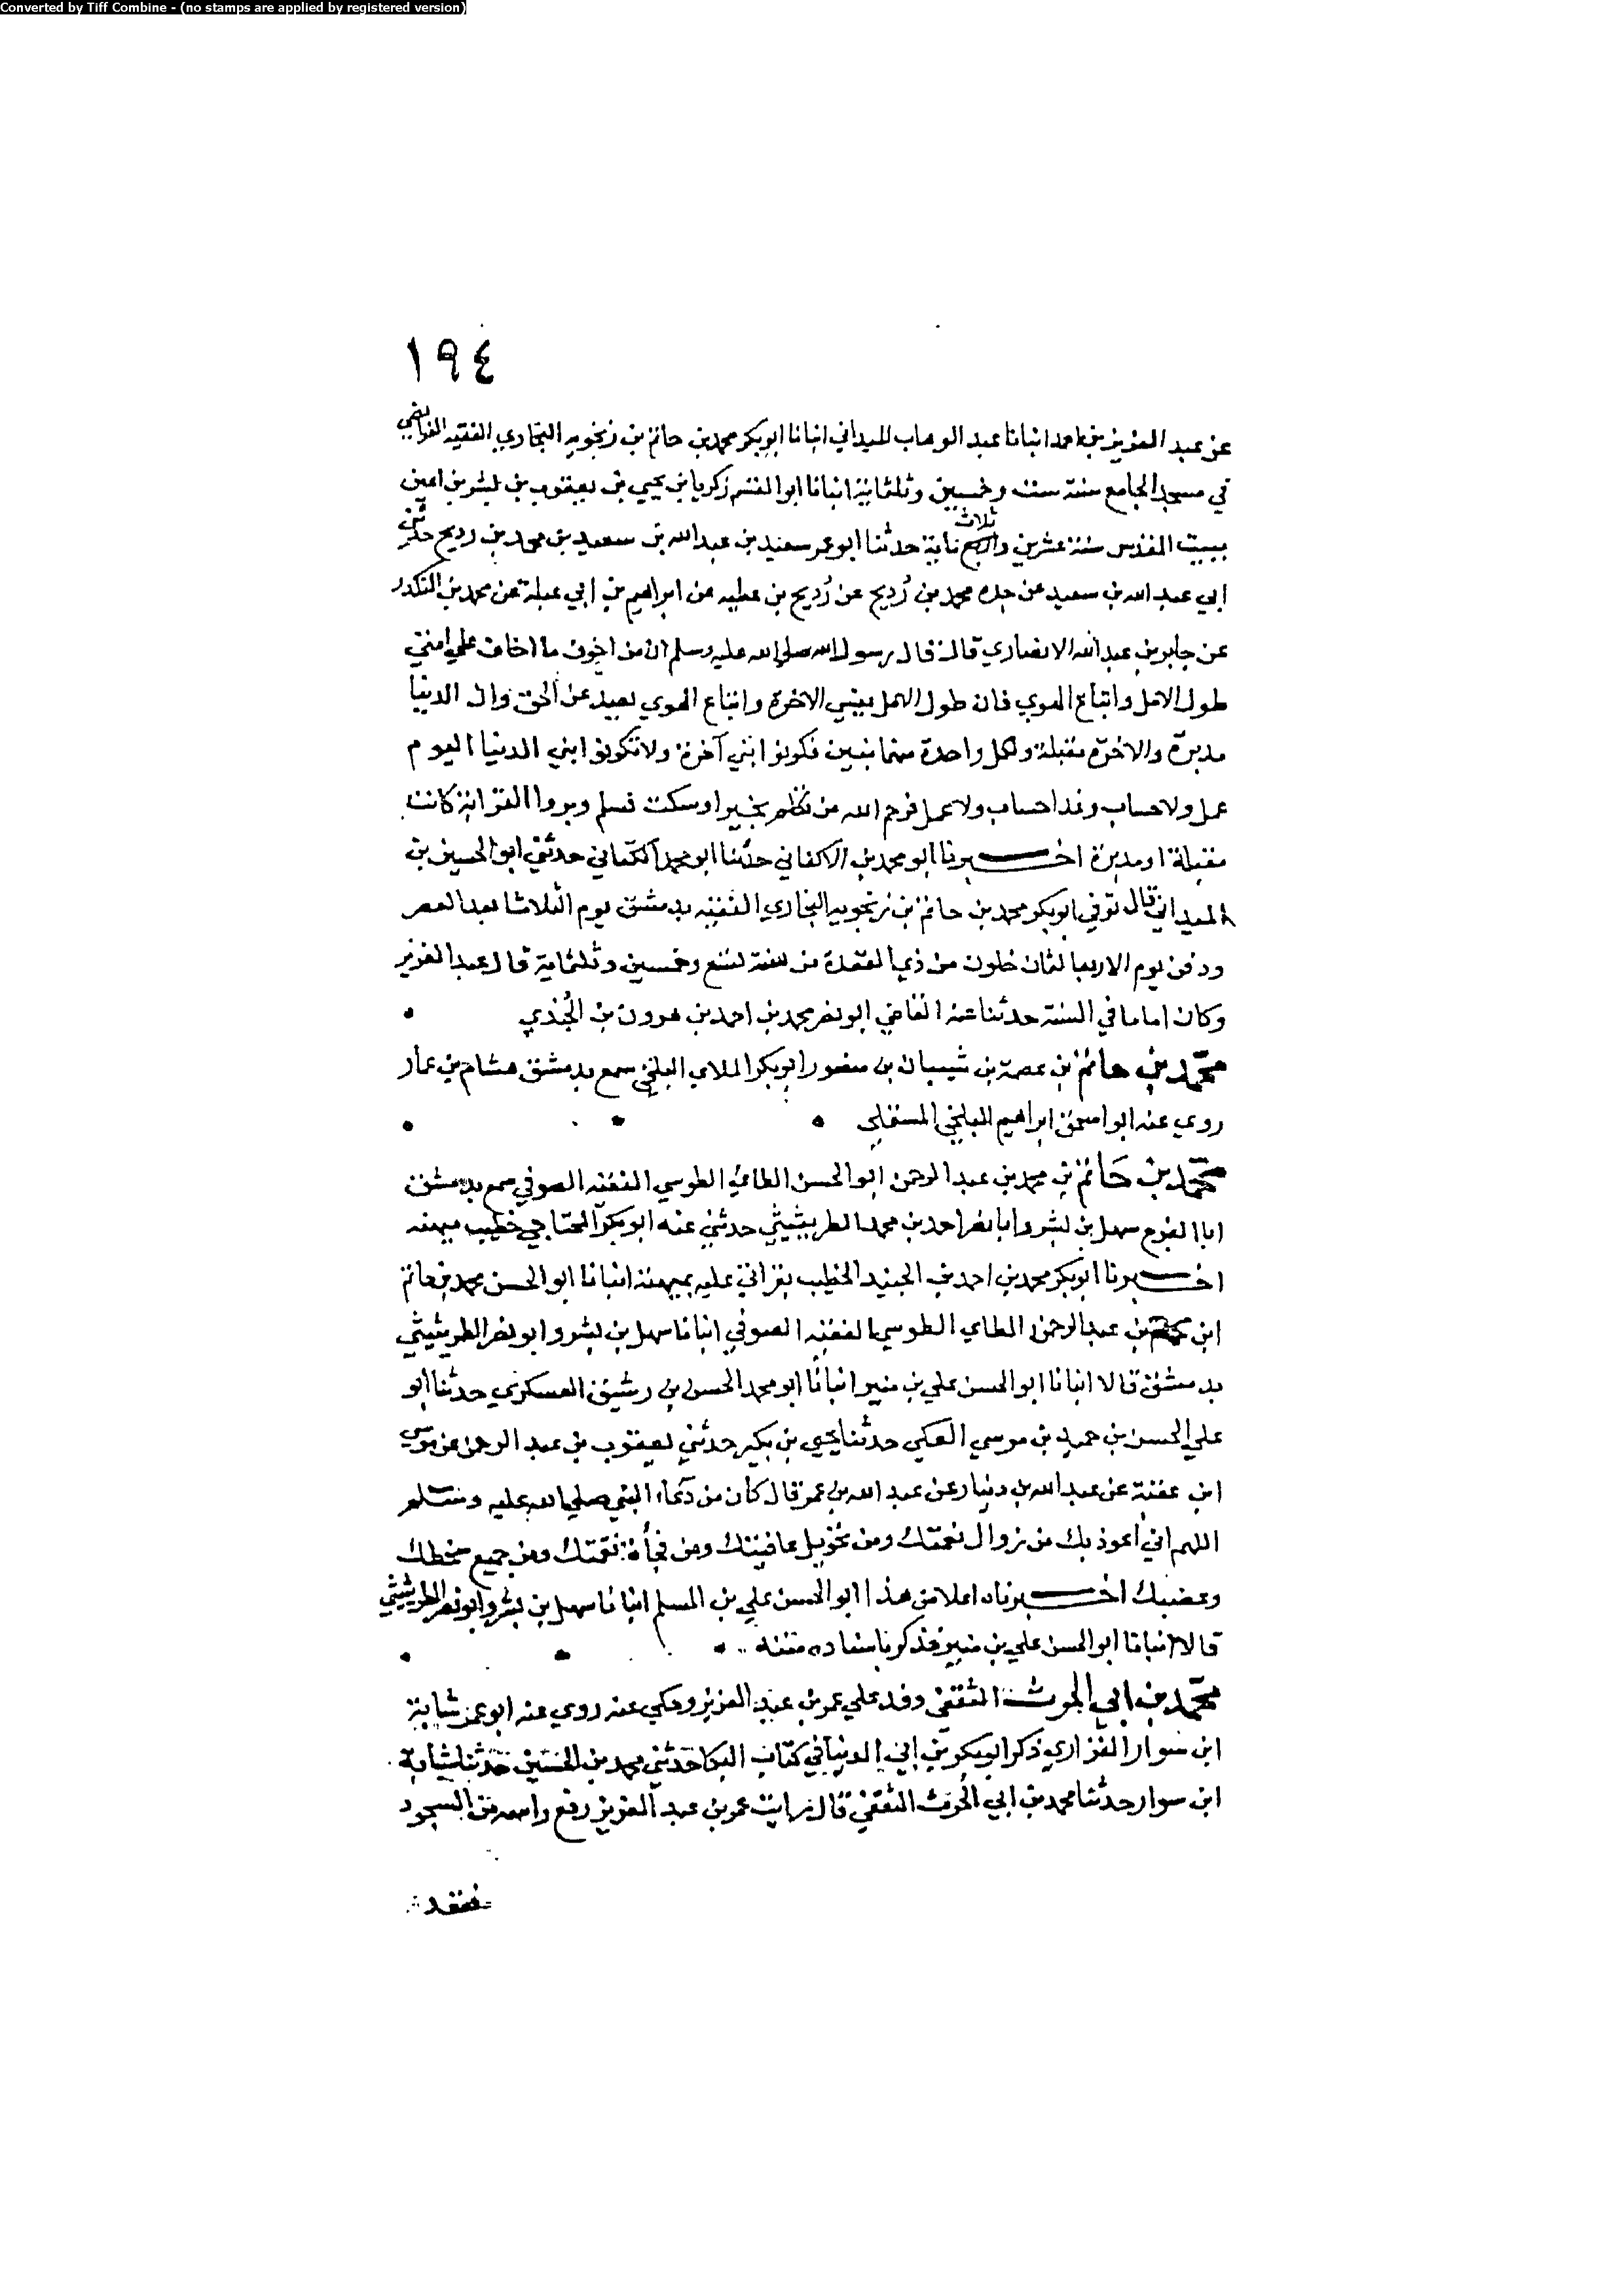 Converted by Tiff Combine - (no stamps are applied by registered version)
١٩٤
عن عبد العزيز بن احمد انبانا عبد الوهاب الميداني انبانا ابو بكر محمد بن حاتم بن زنجويه البخاري الفقيه الفرايضي
في مسجد الجامع سنة ست وخمسين وثلثماية انبانا ابو القسم زكريا بن يحيي بن يعقوب بن بشر بن اعين
ببيت المقدس سنة عشرين وثلاث ماية حدثنا ابو عمر سعيد بن عبد الله بن سعيد بن محمد بن رديح حدثني
ابي عبد الله بن سعيد عن جده محمد بن رُديح عن رُديح بن عطيه عن ابراهيم بن ابي عبلة عن محمد بن المنكدر
عن جابر بن عبد الله الانصاري قال قال رسول الله صلي الله عليه وسلم ان من اخوف ما اخاف علي امتي
طول الامل واتباع الهوي فان طول الامل ينسي الاخرة واتباع الهوي يصد عن الحق وان الدنيا
مدبرة والاخرة مقبلة ولكل واحدة منهما بنين فكونوا ابني آخرة ولا تكونوا ابني الدنيا اليوم
عمل ولا حساب وغدا حساب ولا عمل فرحم الله من تكلم بخير او سكت فسلم
مقبلة او مدبرة اخبرنا ابو محمد بن الاكفاني حدثنا ابو محمد الكتاني حدثني ابو الحسين بن
الميداني قال توفي ابو بكر محمد بن حاتم بن زنجويه البخاري الفقيه بدمشق يوم الثلاثا بعد العصر
ودفن يوم الاربعا لثمان خلون من ذي القعدة من سنة تسع وخمسين وثلثماية قال عبد العزيز
وكان اماما في السنة حدثنا عنه القاضي ابو نصر محمد بن احمد بن هرون بن الجُندي
محمّد بن حاتم بن عصمة بن شيبان بن منصور ابو بكر البلخي سمع بدمشق هشام بن عمار
روي عنه ابو اسحق ابراهيم البلخي المستملي
محمّد بن حَاتم بن محمد بن عبد الرحمن ابو الحسن الطائي الطوسي الفقيه الصوفي سمع بدمشق
ابا الفرج سهل بن بشر وابا نصر احمد بن محمد الطريثيثي حدثني عنه ابو بكر خطيب ميهنه
اخبرنا ابو بكر محمد بن احمد بن الجنيد الخطيب بقراتي عليه بميهنة انبانا ابو الحسن محمد بن حاتم
ابن محمد بن عبد الرحمن الطاي الطوسي الفقيه الصوفي انبانا سهل بن بشر وابو نصر الطريثيثي
بدمشق قالا انبانا ابو الحسن علي بن منير انبانا ابو محمد الحسن بن رشيق العسكري حدثنا أبو
علي الحسن بن حميد بن موسي العكي حدثنا يحيي بن بكير حدثني يعقوب بن عبد الرحمن عن موسي
ابن عقبة عن عبد الله بن دينار عن عبد الله بن عمر قال كان من دعاء النبي صلي الله عليه وسلم
اللهم اني أعوذ بك من زوال نعمتك ومن تحويل عافيتك ومن فجأة نقمتك ومن جميع سخطك
وغضبك اخبرناه اعلا من هذا ابو الحسن علي بن المسلم انبانا سهل بن بشر وابو نصر الطريثيثي
قالا انبانا ابو الحسن علي بن منير فذكر باسناده مثله
محمّد بن ابي الحرث الثقفي وفد علي عمر بن عبد العزيز وحكي عنه روي عنه ابو عمر شبابة
ابن سوار الفزاري ذكر ابو بكر بن ابي الدنيا في كتاب البكا حدثني محمد بن الحسين حدثنا شبابة
ابن سوار حدثنا محمد بن ابي الحرث الثقفي قال رايت عمر بن عبد العزيز رفع راسه من السجود
فقعد